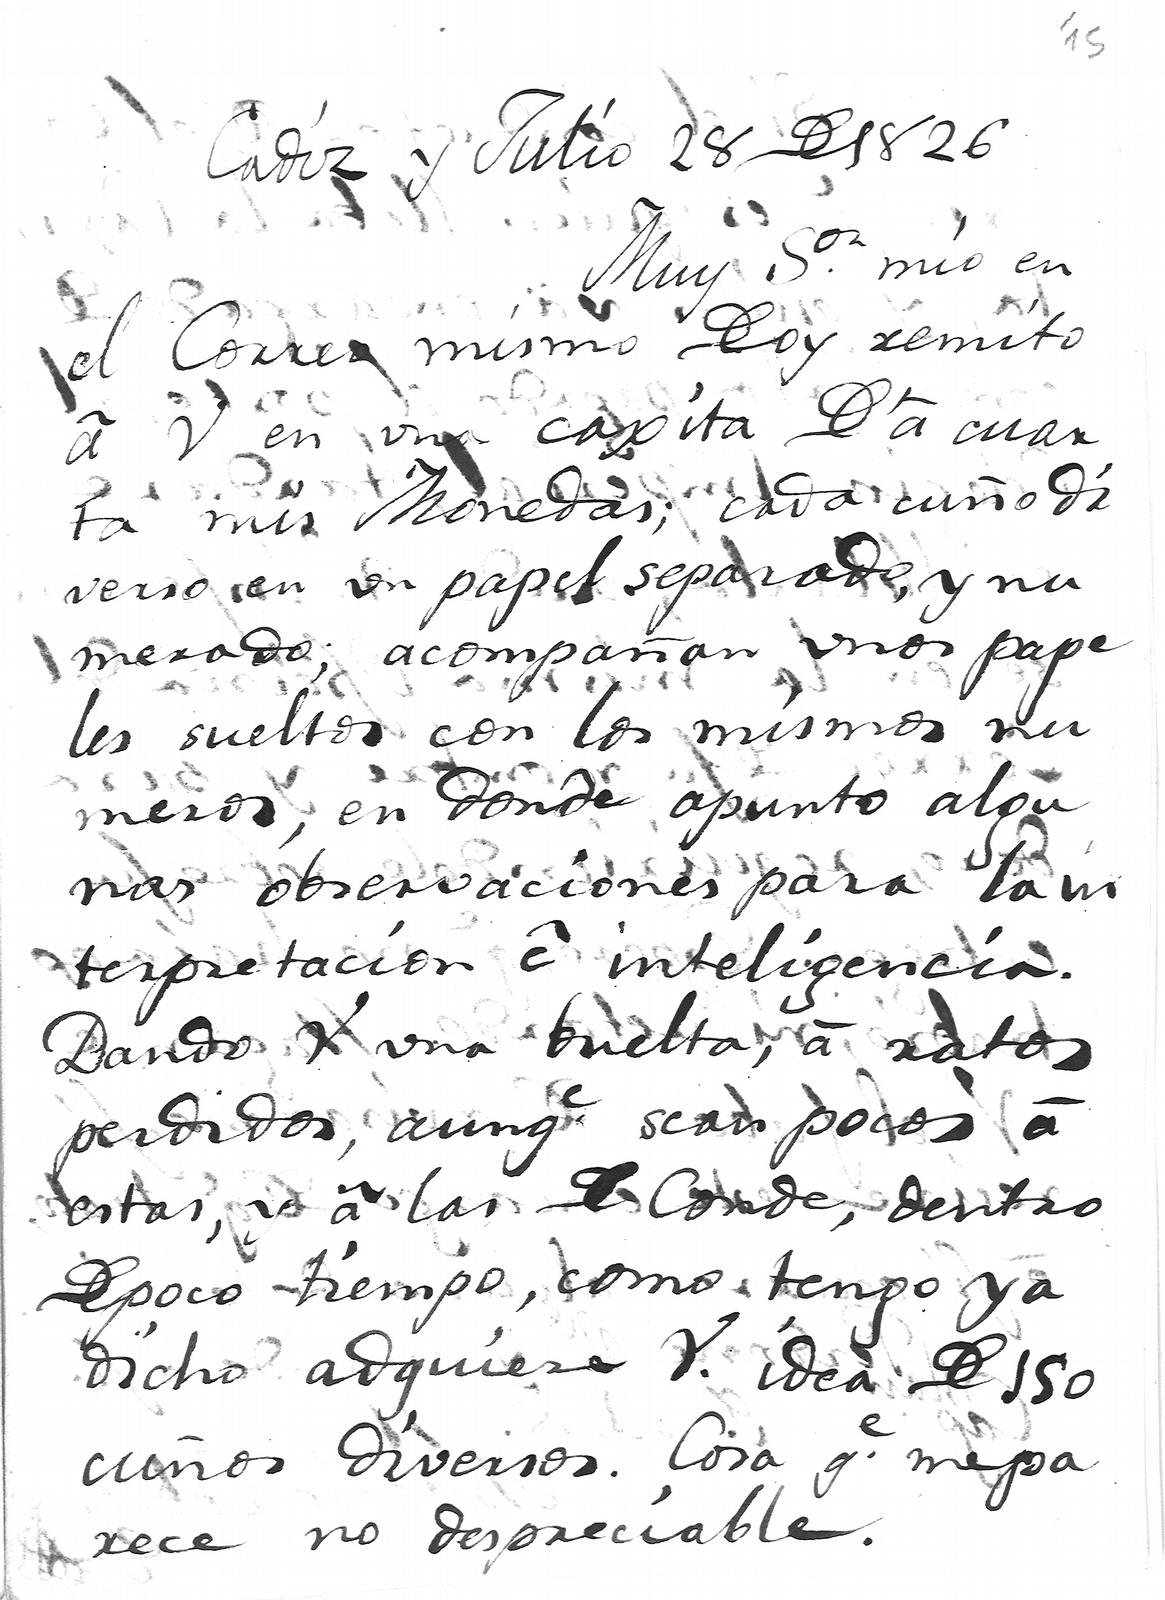 15
Cadiz y Julio 28 De 1826
Muy S.or mio en
el Correo mismo De oy remito
â V en una caxita De ta â cuar
ta mis Monedas; cada cuño di
verso en un papel separado, y nu
merado; acompañan unos pape
les sueltos con los mismos nu
meros, en donde apunto algu
nas observaciones para la in
terpretacion ê inteligencia.
Dando V una buelta, â ratos
perdidos, aunq.e sean pocos â
estas, y â las De Conde, dentro
De poco tiempo, como tengo ya
dicho adquiere V. idea De 150
cuños diversos. Cosa q.e me pa
rece no despreciable.